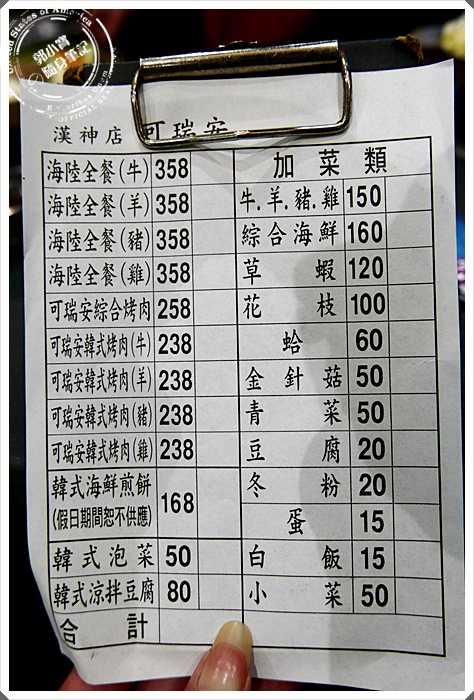 郭小寶
隨身筆記
漢神店 可瑞安
海陸全餐(牛) 358
海陸全餐(羊) 358
海陸全餐(豬) 358
海陸全餐(雞) 358
可瑞安綜合烤肉 258
可瑞安韓式烤肉(牛) 238
可瑞安韓式烤肉(羊) 238
可瑞安韓式烤肉(豬) 238
可瑞安韓式烤肉(雞) 238
韓式海鮮煎餅 168
(假日期間恕不供應)
韓式泡菜 50
韓式涼拌豆腐 80
合計
加菜類
牛.羊.豬.雞 150
綜合海鮮 160
草蝦 120
花枝 100
蛤 60
金針菇 50
青菜 50
豆腐 20
冬粉 20
蛋 15
白飯 15
小菜 50